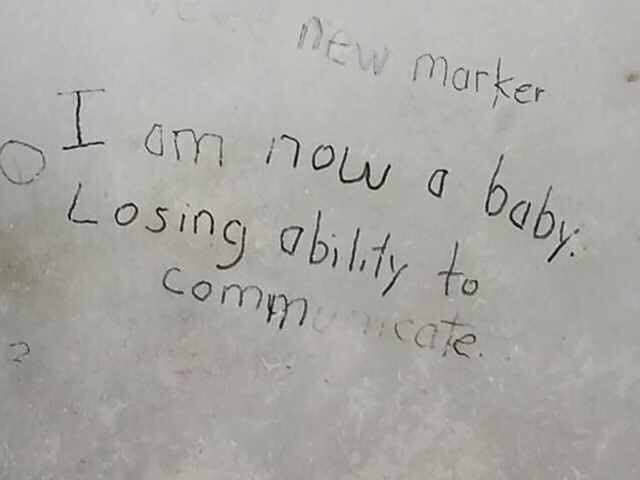 new marker
I am now a baby.
Losing ability to
communicate.
?